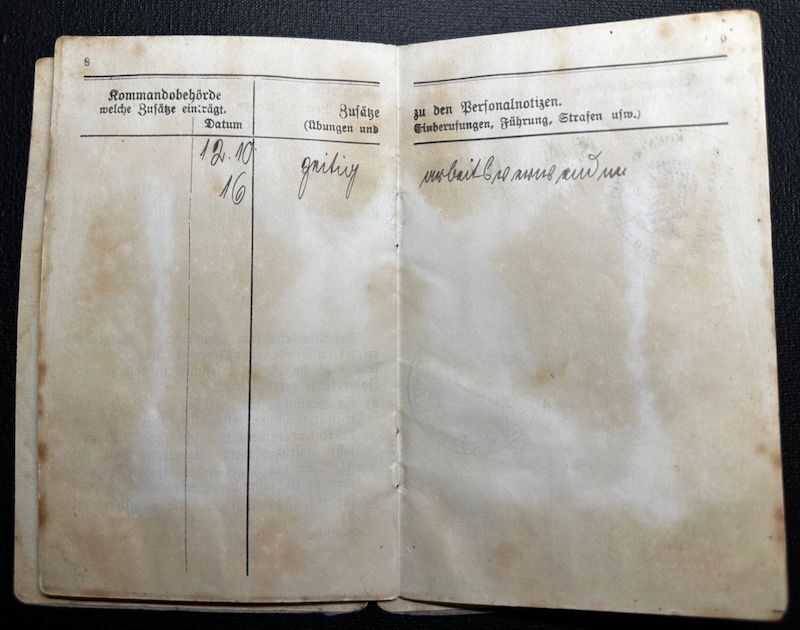 8
9
Kommandobehörde
welche Zusätze einträgt.
Datum
Zusätze zu den Personalnotizen.
(Übungen und Einberufungen, Führung, Strafen usw.)
12.10 zeitig arbeitsverwend
16